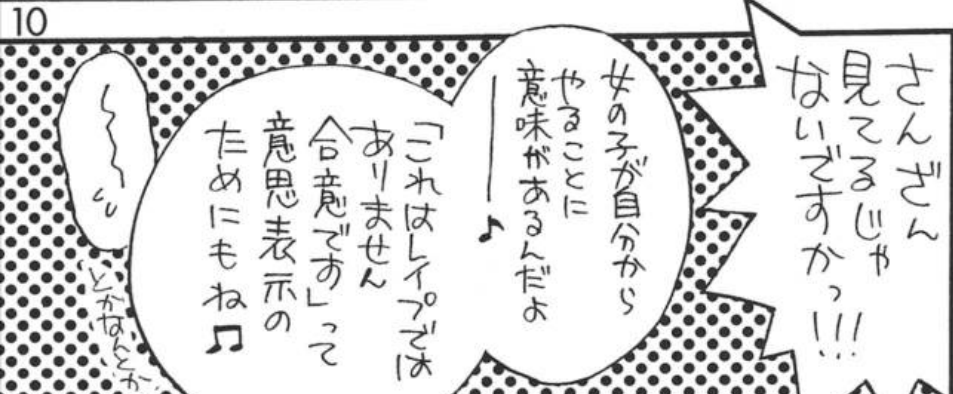 10
さんざん
見てるじゃ
ないですかっ!!!
女の子が自分から
やることに
意味があるんだよ
――♪
「これはレイプでは
ありません
合意です」って
意思表示の
ためにもね♫
とかなんとか